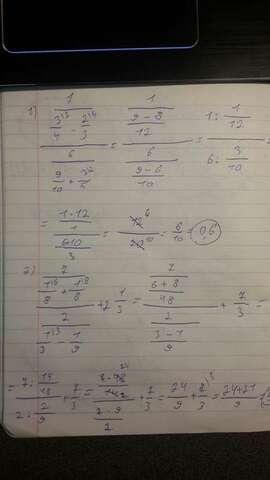 1) (1/(3/4 - 2/3))/(6/(9/10 + 3/5)) = (1/((9-8)/12))/(6/((9-6)/10)) = (1 : 1/12)/(6 : 3/10) =
= ((1·12)/1)/((6·10)/3) = 12/20 = 6/10 = 0,6
2) (7/(1/8 + 1/8))/(2/(1/3 - 1/9)) + 2 1/3 = (7/((6+8)/48))/(2/((3-1)/9)) + 7/3 =
= (7 : 14/48)/(2 : 2/9) + 7/3 = + 7/3 = 24/9 + 7/3 = (24+21)/9